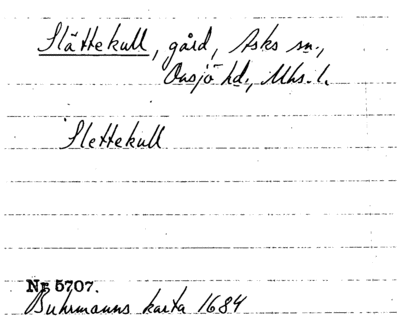 Slättekull, gård, Asks sn.,
Onsjö hd., Mhs. l.
Slettekull
Nr 5707.
Buhrmanns karta 1684